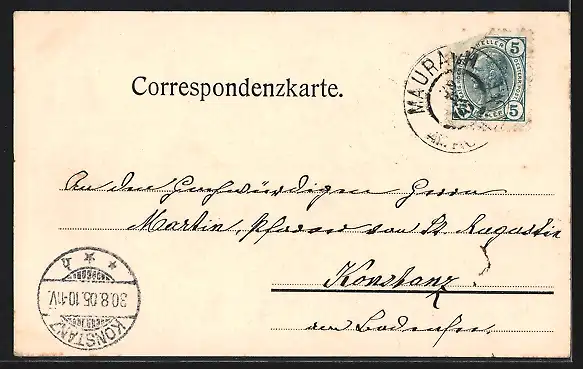 Correspondenzkarte.
MAURACH
5 HELLER 5
An den Hochwürdigen Herrn
Martin, Pfarrer von St. Augustin
Konstanz
am Bodensee.
KONSTANZ
30.8.05.10-11V.